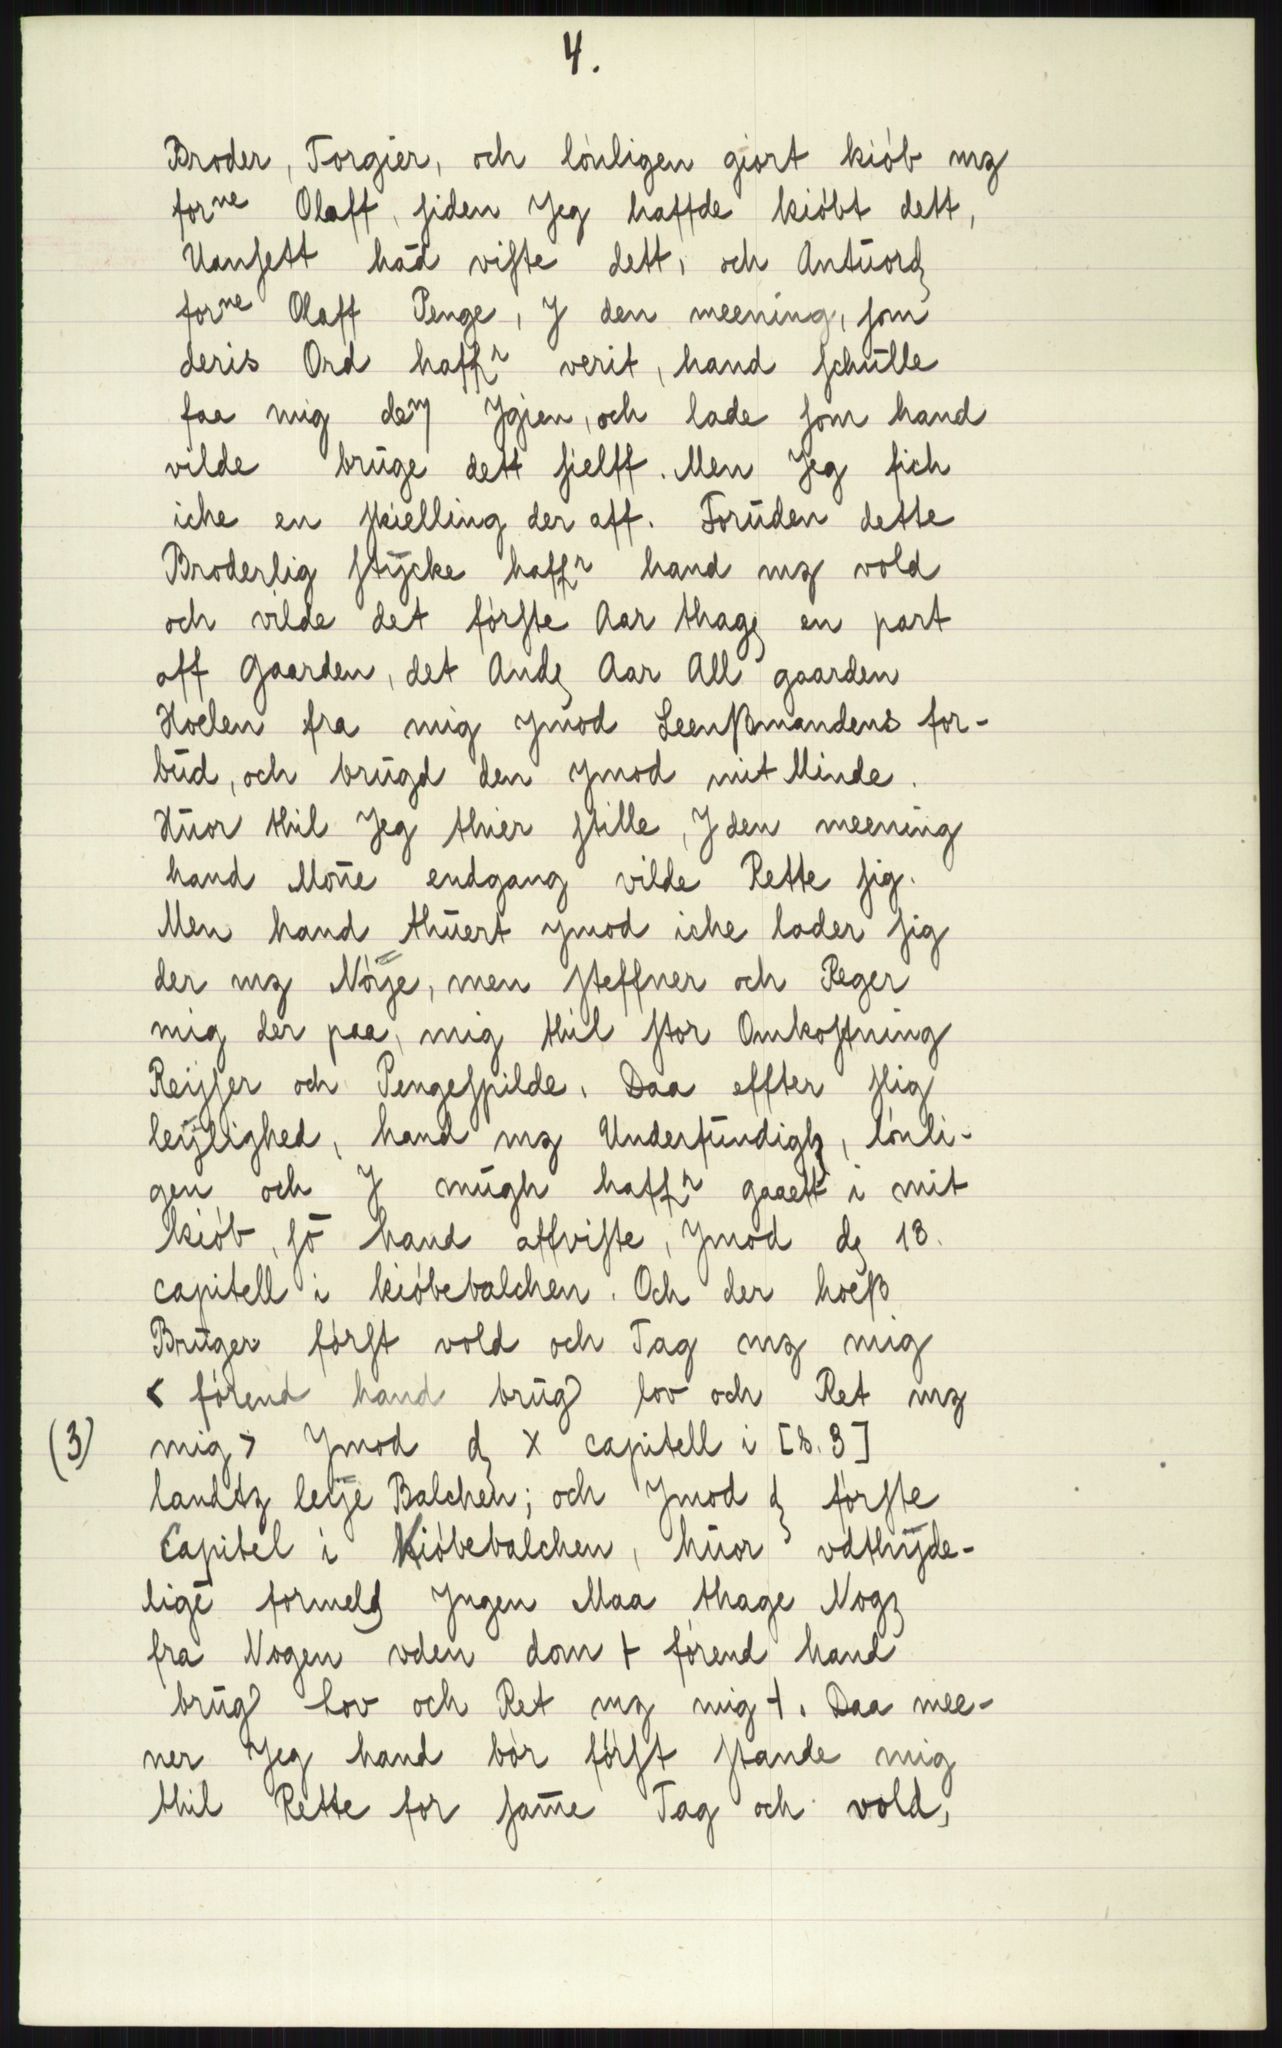 4.
Broder, Torgier, och lönligen giort kiöb mz
forne Olaff, siden Jeg haffde kiöbt dett,
Uansett häd viste dett, och Antuordȩ
forne Olaff Penge, J den meening, som
deris Ord haffr verit, hand schulle
faa mig dem Jgien, och lade som hand
vilde bruge dett sielff. Men Jeg fich
iche en skielling der aff. Foruden dette
Broderlig stycke haffr hand mz vold
och vilde det förste Aar thagȩ en part
aff gaarden, det Andȩ Aar All gaarden
Hoelen fra mig ymod Leenßmandens for-
bud, och brugd den ymod mit Minde.
Huor thil Jeg thier stille, J den meening
hand Mone endgang vilde Rette sig.
Men hand thuert ymod iche lader sig
der mz Nöye, men steffner och Reger
mig der paa, mig thil stor Omkostning
Reisser och Pengespilde. Daa effter slig
leylighed, hand mz Underfundigh, lönli-
gen och J mugh haffr gaaett i mit
kiöb, sö hand affviste, ymod dȩ 18.
capitell i kiöbebalchen. Och der hoeß
Bruger först vold och Tag mz mig
< förend hand brug lov och Ret mz
(3) mig > ymod dȩ X capitell i [s. 3]
landtz leye Balchen; och ymod dȩ förste
Capitel i Kiöbebalchen, huor vdthyde-
lige formeldȩ Jngen Maa thage Nogȩ
fra Nogen vden dom + förend hand
brug lov och Ret mz mig +. Daa mee-
ner Jeg hand bör först stande mig
thil Rette for same Tag och vold,